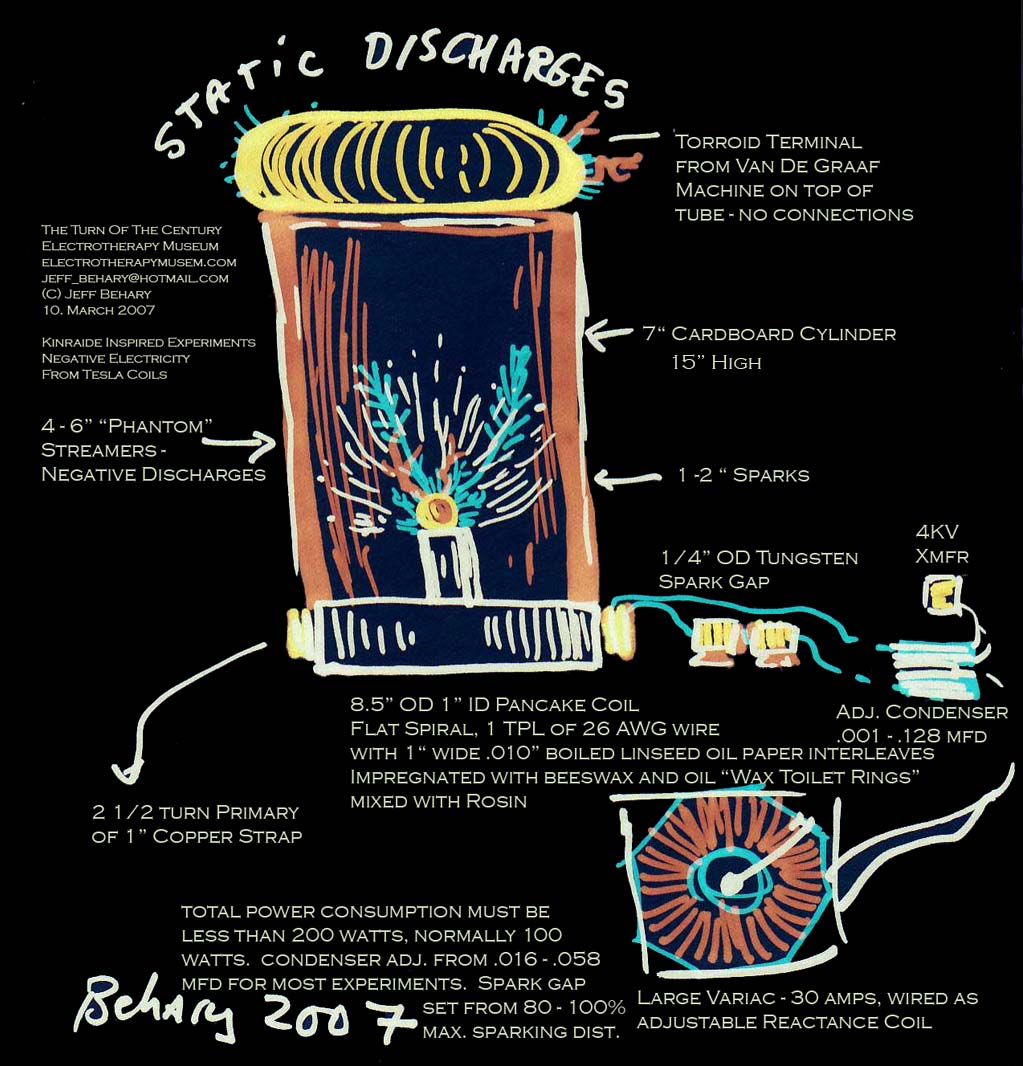 STATIC DISCHARGES
TORROID TERMINAL
FROM VAN DE GRAAF
MACHINE ON TOP OF
TUBE - NO CONNECTIONS
THE TURN OF THE CENTURY
ELECTROTHERAPY MUSEUM
ELECTROTHERAPYMUSEM.COM
JEFF_BEHARY@HOTMAIL.COM
(C) JEFF BEHARY
10. MARCH 2007
KINRAIDE INSPIRED EXPERIMENTS
NEGATIVE ELECTRICITY
FROM TESLA COILS
7“ CARDBOARD CYLINDER
15” HIGH
4 - 6” “PHANTOM”
STREAMERS -
NEGATIVE DISCHARGES
1 -2 “ SPARKS
4KV
XMFR
1/4” OD TUNGSTEN
SPARK GAP
8.5” OD 1” ID PANCAKE COIL
FLAT SPIRAL, 1 TPL OF 26 AWG WIRE
WITH 1“ WIDE .010” BOILED LINSEED OIL PAPER INTERLEAVES
IMPREGNATED WITH BEESWAX AND OIL “WAX TOILET RINGS”
MIXED WITH ROSIN
ADJ. CONDENSER
.001 - .128 MFD
2 1/2 TURN PRIMARY
OF 1” COPPER STRAP
TOTAL POWER CONSUMPTION MUST BE
LESS THAN 200 WATTS, NORMALLY 100
WATTS. CONDENSER ADJ. FROM .016 - .058
MFD FOR MOST EXPERIMENTS. SPARK GAP
SET FROM 80 - 100%
MAX. SPARKING DIST.
Behary 2007
LARGE VARIAC - 30 AMPS, WIRED AS
ADJUSTABLE REACTANCE COIL